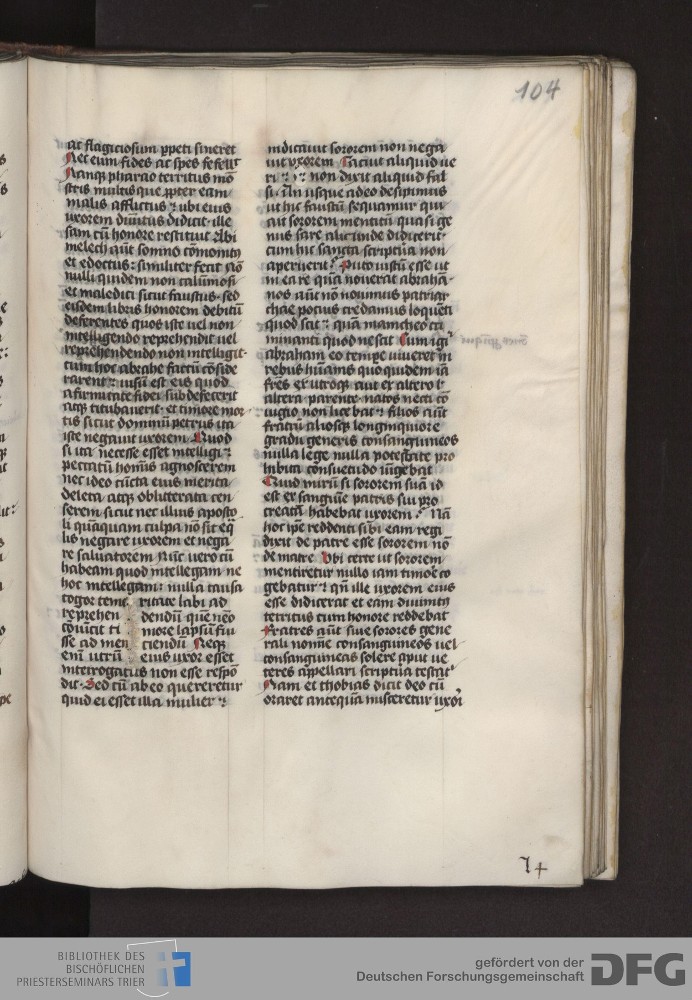 104
ac flagiciosum ꝑpeti sineret
Nec eum fides ac spes fefellit
Namque pharao territus mõ
stris multisque ꝓpter eam
malis afflictus ⁊ ubi eius
uxorem diuinitus didicit ille
sam cũ honore restituit Abi
melech aũt somno cõmonitꝰ
et edoctus: similiter fecit Nõ
nulli quidem non calũniosi
et maledici sicut faustus· sed
eisdem libris honorem debitũ
deferentes quos iste uel non
intelligendo reprehendit uel
reprehendendo non intelligit·
cum hoc abrahe factũ cõside
rarent: uisũ est eis quod
a firmitate fidei subdefecerit
atqꝫ titubauerit· et timore mor
tis sicut dominũ petrus ita
iste negauit uxorem Quod
si ita necesse esset intelligi ⁊
peccatũ hominis agnoscerem
nec ideo cũcta eius merita
deleta atqꝫ oblitterata cen
serem sicut nec illius aposto
li quãquam culpa nõ sit eq̃
lis negare uxorem et nega
re saluatorem Nũc uero cũ
habeam quod intellegam ne
hoc intellegam: nulla causa
cogor teme ritate labi ad
reprehen dendũ que nẽo
cõuicit ti more lapsũ fu
sse ad men ciendũ Neqꝫ
enĩ utrũ eius uxor esset
interrogatus non esse respõ
dit· Sed cũ ab eo quereretur
quid ei esset illa mulier ⁊
indicauit sororem non nega
uit uxorem Tacuit aliquid ue
ri ⁊ non dixit aliquid fal
si· An usque adeo desipimus
ut hic faustũ sequamur qui
ait sororem mentitũ quasi ge
nus sare aliicunde didicerit·
cum hic sancta scriptũra non
aperuerit? Puto iustũ esse ut
in ea re quã nouerat abrahã·
nos aũt nõ nouimus patriar
chae potius credamus loquẽti
quod scit ⁊ quã manicheo cri
minanti quod nescit Cum igitur
abraham eo tempe uiueret in
rebus huãnis quo quidem iã
fr̃es ex utroqꝫ aut ex altero ł
altera parente natos necti cõ
iugio non licebat ⁊ filios aũt
fratrũ aliosqꝫ longinquiore
gradu generis consanguineos
nulla lege nulla potestate pro
hibita consuetudo iũgebat
Quid mirũ si sororem suã id
est ex sanguĩe patris sui pro
creatã habebat uxorem? Nã
hoc ipẽ reddenti sibi eam regi
dixit de patre esse sororem nõ
de matre Ubi certe ut sororem
mentiretur nullo iam timore co
gebatur ⁊ qñ ille uxorem eius
esse didicerat et eam diuinitꝰ
territus cum honore reddebat
Fratres aũt siue sorores gene
rali nomĩe consanguineos uel
consanguineas solere aput ue
teres appellari scriptũra testatꝰ
Nam et thobias dicit deo cũ
oraret antequã misceretur uxori
BIBLIOTHEK DES
BISCHÖFLICHEN
PRIESTERSEMINARS TRIER
gefördert von der
Deutschen Forschungsgemeinschaft
DFG